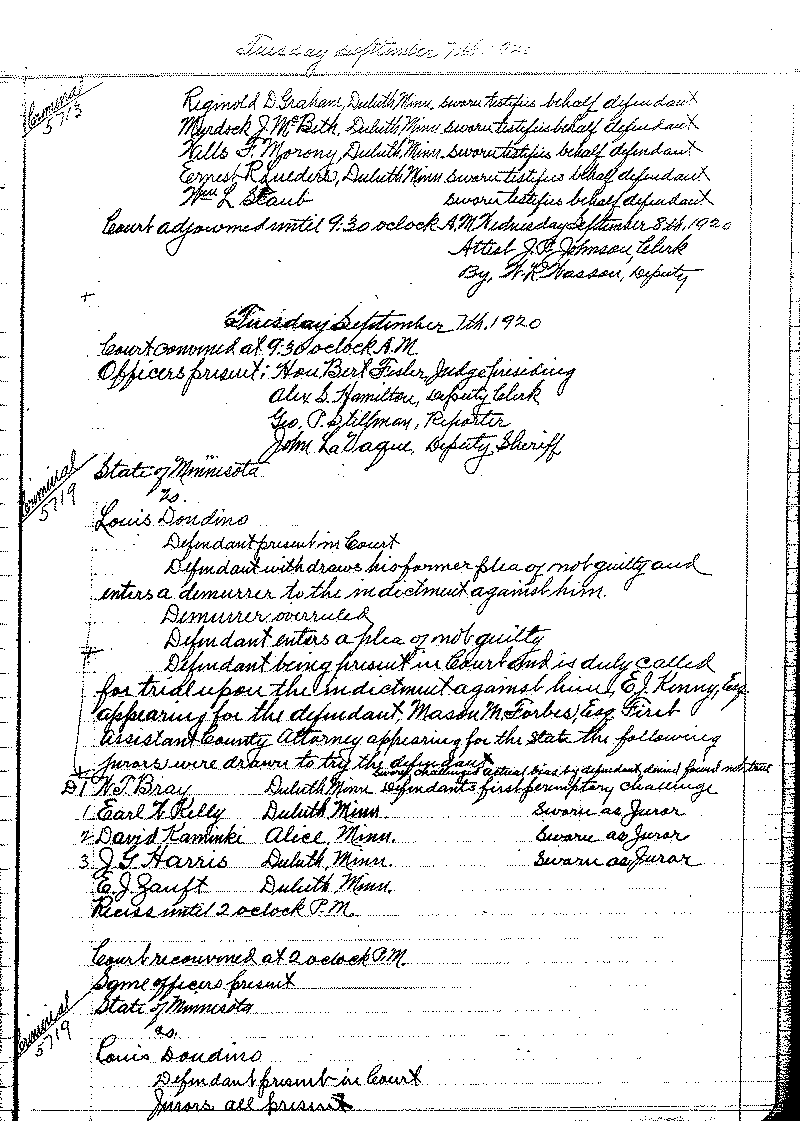 Tuesday September 7th. 1920
Criminal
5713
Reginold D. Graham, Duluth, Minn. sworn testifies behalf defendant
Myrdock J. McBeth, Duluth, Minn. sworn testifies behalf defendant
F. Morony, Duluth, Minn. sworn testifies behalf defendant
Ernest R. Duluth Minn sworn testifies behalf defendant
Wm L Staub sworn testifies behalf defendant
Court adjourned until 9:30 oclock A.M. Wednesday September 8th, 1920
Attest J.P. Johnson, Clerk
By, W.R. Wasson, Deputy
Tuesday September 7th, 1920
Court convened at 9:30 oclock A.M
Officers present; Hon Bert Fesler, Judge presiding
Alex S. Hamilton, Deputy Clerk
Geo. P. Stillman, Reporter
John LaVaque, Deputy Sheriff
Criminal
5719
State of Minnesota
vs.
Louis Dondino
Defendant present in Court
Defendant withdraws his former plea of not guilty and
enters a demurrer to the indictment against him.
Demurrer overruled
Defendant enters a plea of not guilty
Defendant being present in Court and is duly called
for trial upon the indictment against him, E.J. Kenny, Esq
appearing for the defendant, Mason M. Forbes, Esq. First
Assistant County Attorney appearing for the State the following
jurors were drawn to try the defendant
sworn challenged actual bias by defendant, denied found not true
D1 W.T. Bray Duluth Minn Defendants first peremptory challenge
1 Earl W. Kelly Duluth Minn. Sworn as Juror
2 David Kaminki Alice, Minn. Sworn as Juror
3 J G Harris Duluth, Minn. Sworn as Juror
E.J. Zauft Duluth Minn.
Recess until 2 oclock P.M.
Court reconvened at 2 oclock P.M.
Same officers present
Criminal
5719
State of Minnesota
vs.
Louis Dondino
Defendant present in Court
Jurors all present